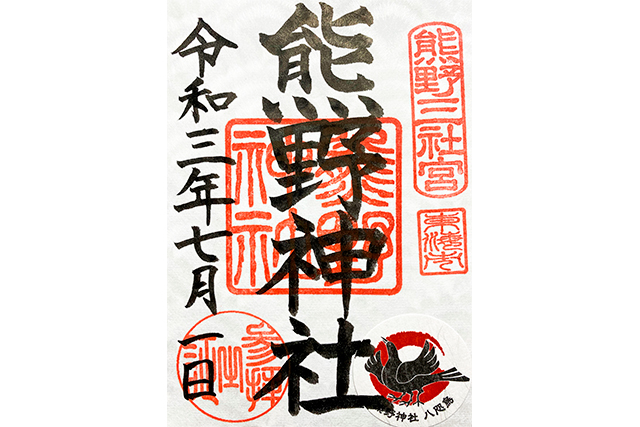 熊野三社宮
東海市
熊野神社
令和三年七月一日
参拝
熊野神社 八咫烏